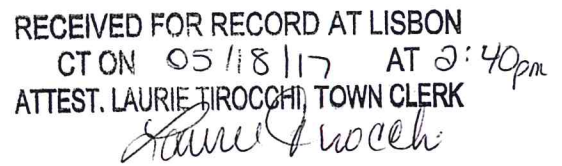 RECEIVED FOR RECORD AT LISBON
CT ON 05/18/17 AT 2:40pm
ATTEST. LAURIE TIROCCHI, TOWN CLERK
Laurie Tirocchi